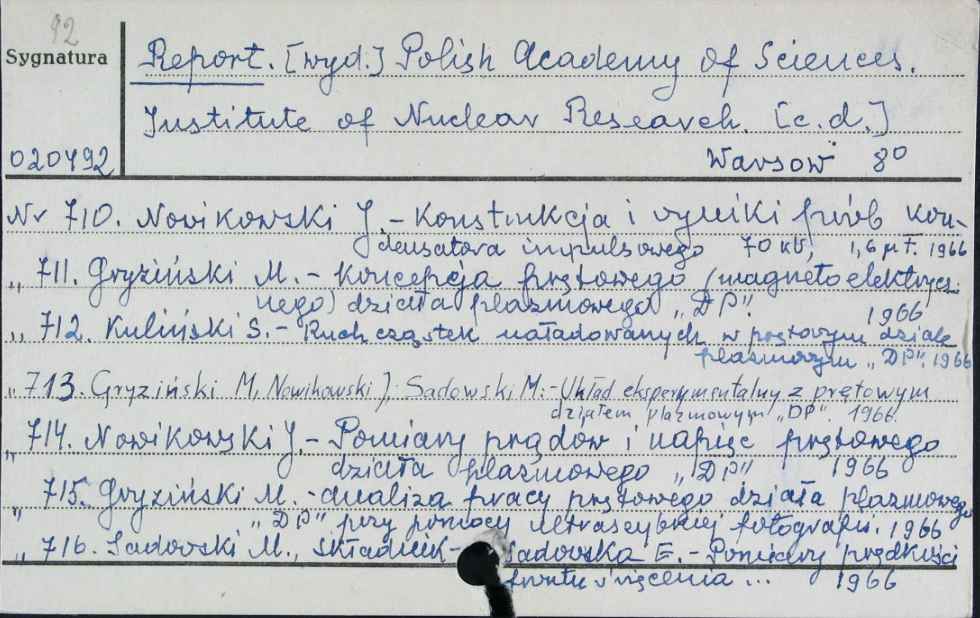 92
Sygnatura
Report. [wyd.] Polish Academy of Sciences.
Institute of Nuclear Research. [c.d.]
020492 Warsow 8⁰
Nr 710. Nowikowski J. - Konstrukcja i wyniki prób kon-
densatora impulsowego 70 kV, 1,6 μF. 1966
„ 711. Gryziński M. - Koncepcja prętowego (magnetoelektrycz-
nego) działa plazmowego „DP". 1966
„ 712. Kuliński S. - Ruch cząstek naładowanych w prętowym dziale
plazmowym „DP". 1966
„ 713. Gryziński M, Nowikowski J; Sadowski M. - Układ eksperymentalny z prętowym
działem plazmowym „DP". 1966.
„ 714. Nowikowski J. - Pomiary prądów i napięć prętowego
działa plazmowego „DP" 1966
„ 715. Gryziński M. - Analiza pracy prętowego działa plazmowego
„DP" przy pomocy ultraszybkiej fotografii. 1966
„ 716. Sadowski M., Składnik-Sadowska E. - Pomiary prędkości
frontu świecenia ... 1966